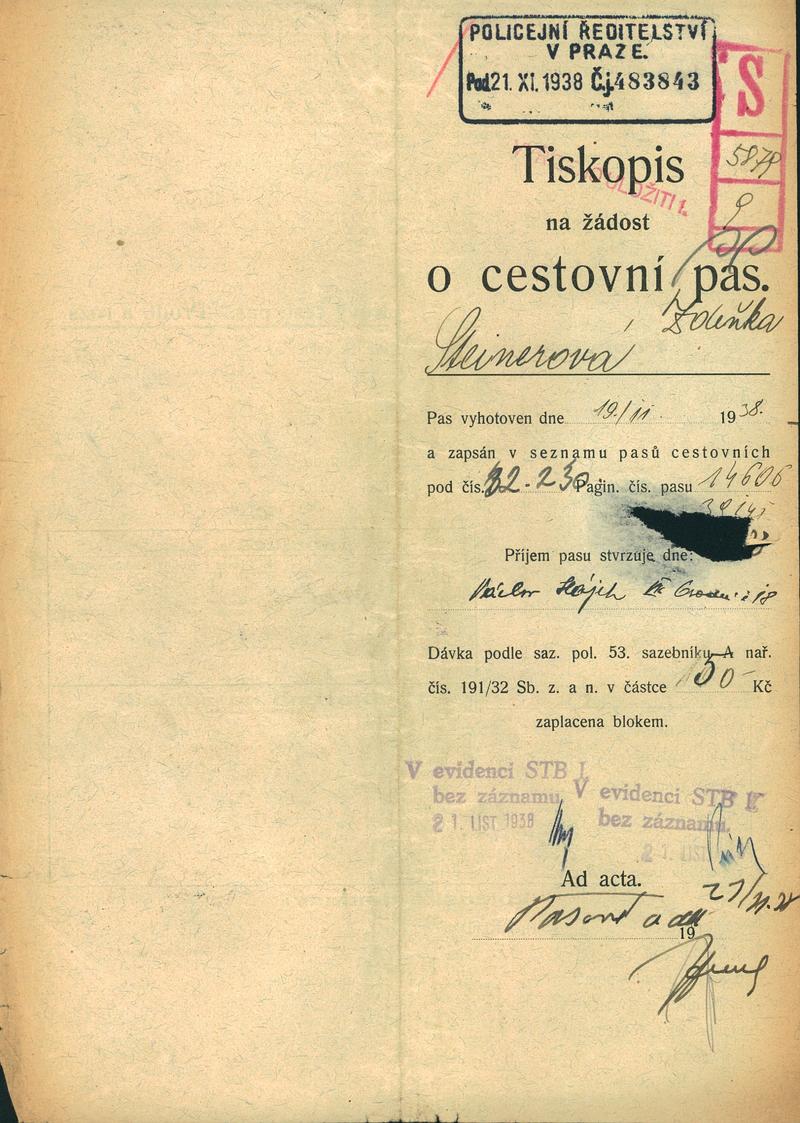 POLICEJNÍ ŘEDITELSTVÍ
V PRAZE.
Pod. 21. XI. 1938 Č.j. 483843
S
5879
9
Tiskopis
na žádost
o cestovní pas.
Zdeňka
Steinerová
Pas vyhotoven dne 19./11. 1938.
a zapsán v seznamu pasů cestovních
pod čís. 32-230. Pagin. čís. pasu 14606
Příjem pasu stvrzuje dne:
Václav
Dávka podle saz. pol. 53. sazebníku A nař.
čís. 191/32 Sb. z. a n. v částce 50- Kč
zaplacena blokem.
V evidenci STB I.
bez záznamu
21. LIST. 1938
V evidenci STB
bez záznamu.
21. LIST.
Ad acta.
19